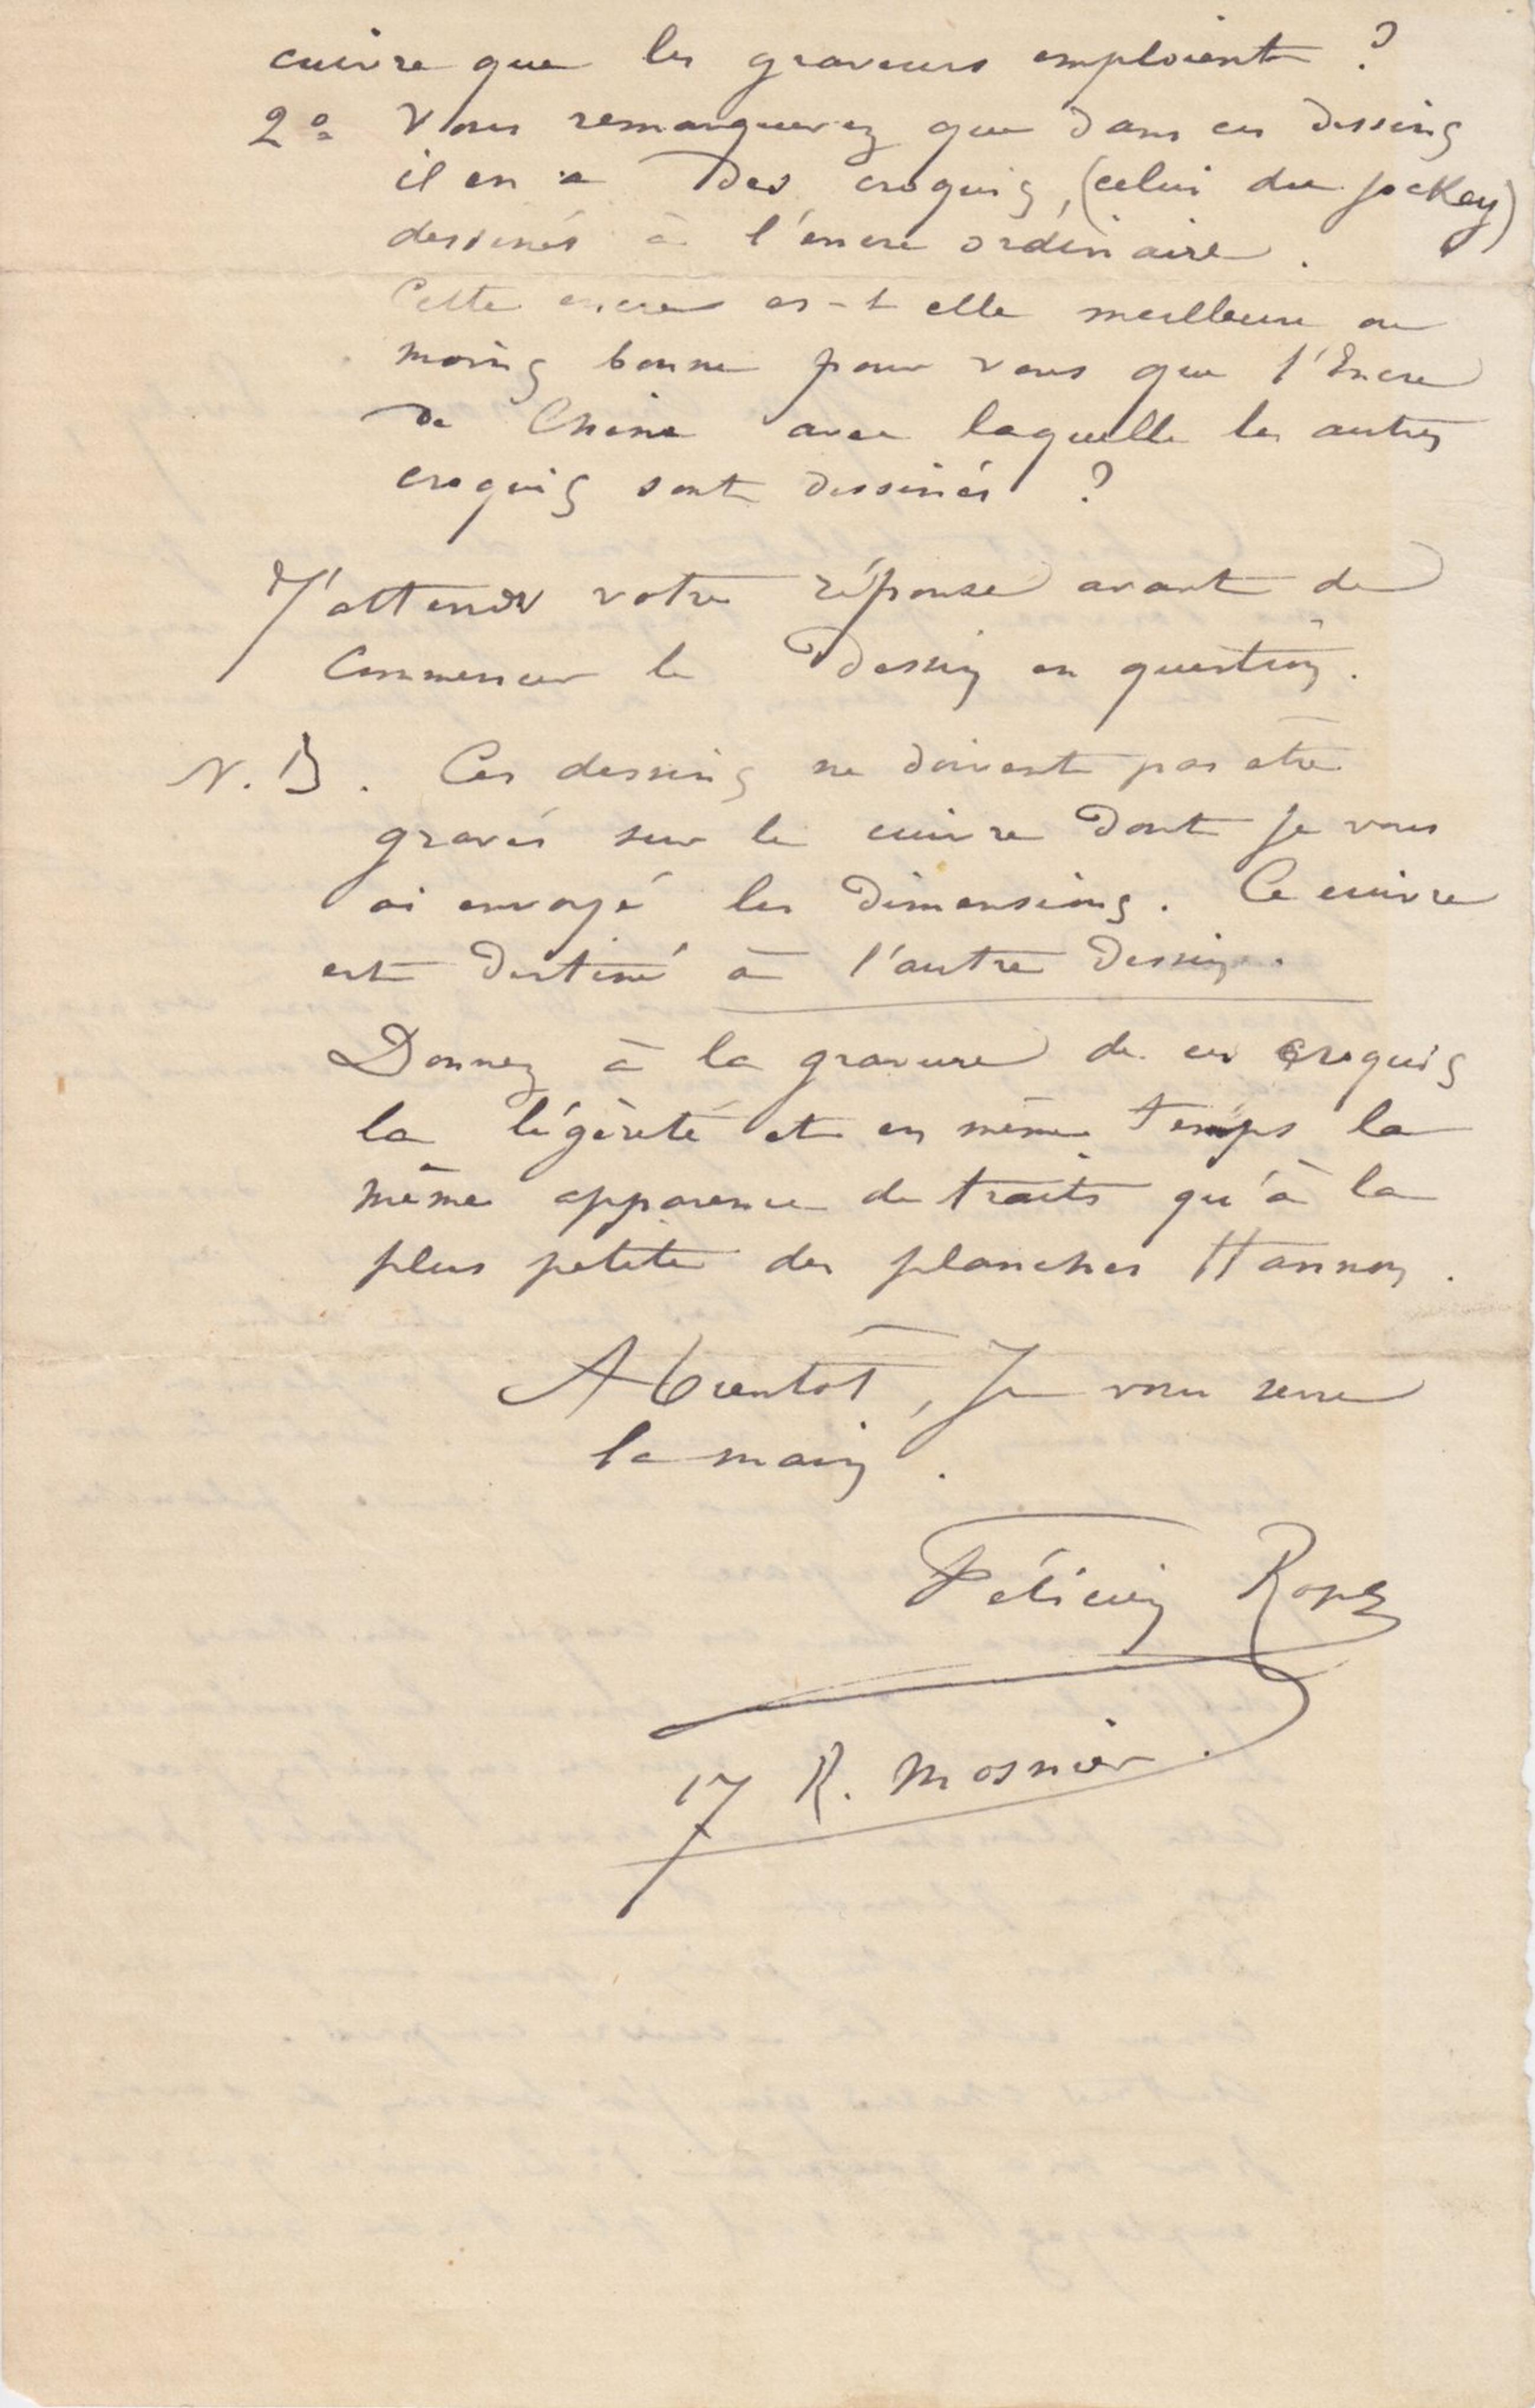 cuivre que les graveurs emploient ?
2° Vous remarquerez que dans ces dessins
il en a des croquis, (celui du jockey)
dessinés à l'encre ordinaire.
Cette encre es-t elle meilleure ou
moins bonne pour vous que l'Encre
de Chine avec laquelle les autres
croquis sont dessinés ?
J'attends votre réponse avant de
commencer le Dessin en question.
N.B. Ces dessins ne doivent pas être
gravés sur le cuivre dont je vous
ai envoyé les Dimensions. Ce cuivre
est destiné à l'autre Dessin.
Donnez à la gravure de ces croquis
la légèreté et en même temps la
même apparence de traits qu'à la
plus petite des planches Hannon.
A bientôt, Je vous serre
la main.
Félicien Rops
17 R. Mosnier.